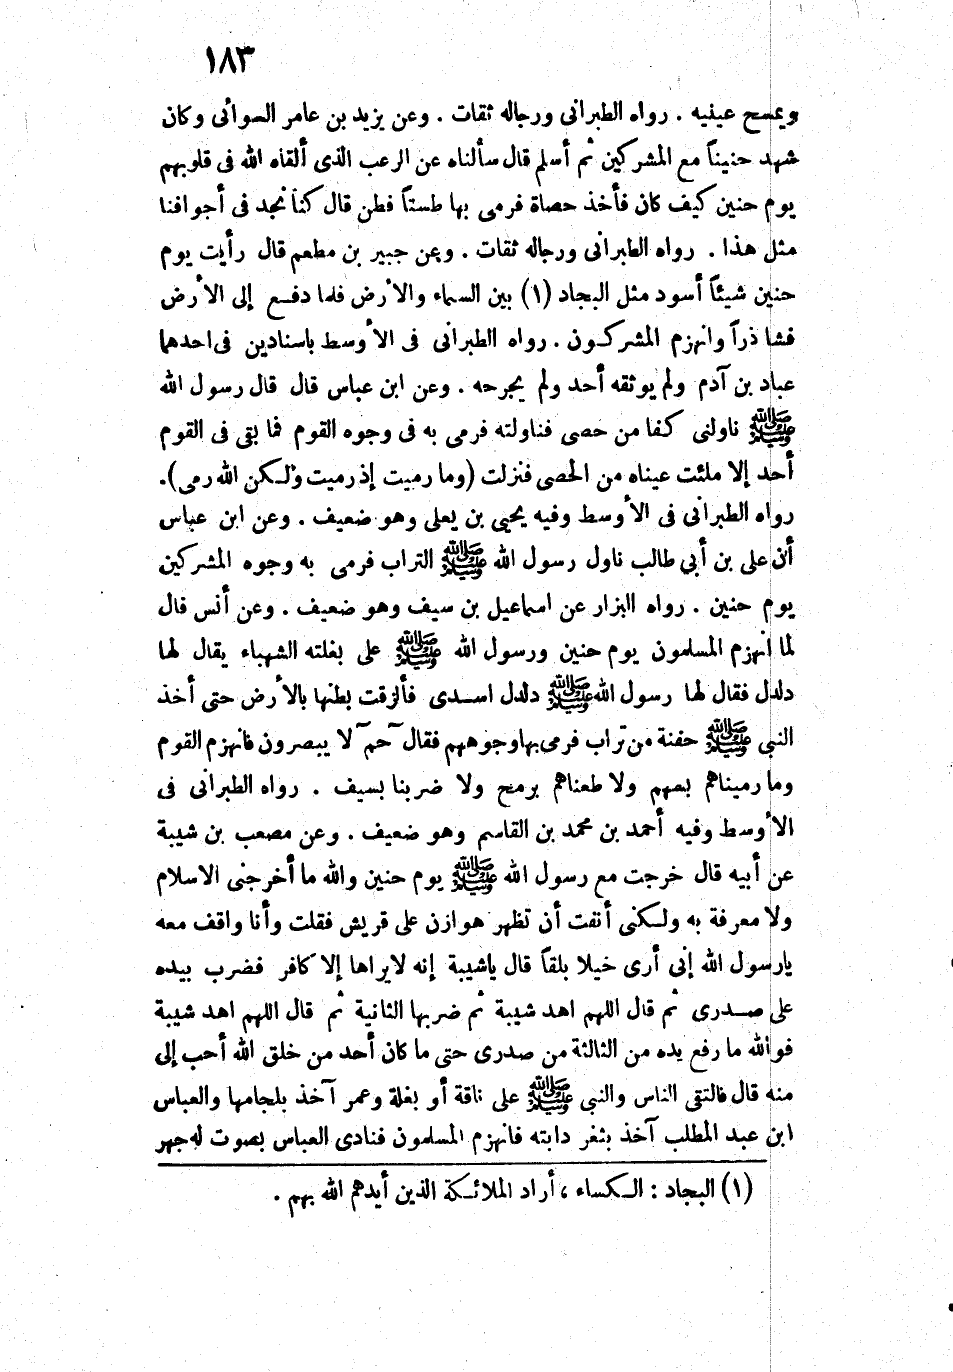 ١٨٣
ويمسح عينيه . رواه الطبرانى ورجاله ثقات . وعن يزيد بن عامر السوائى وكان
شهد حنيناً مع المشركين ثم أسلم قال سألناه عن الرعب الذى ألقاه الله فى قلوبهم
يوم حنين كيف كان فأخذ حصاة فرمى بها طستاً فطن قال كنا نجد فى أجوافنا
مثل هذا . رواه الطبرانى ورجاله ثقات . وعن جبير بن مطعم قال رأيت يوم
حنين شيئاً أسود مثل البجاد (١) بين السماء والأرض فلما دفع إلى الأرض
فشا ذراً وانهزم المشركون . رواه الطبرانى فى الأوسط باسنادين فى احدهما
عباد بن آدم ولم يوثقه أحد ولم يجرحه . وعن ابن عباس قال قال رسول الله
ﷺ ناولنى كفا من حصى فناولته فرمى به فى وجوه القوم فما بقى فى القوم
أحد إلا ملئت عيناه من الحصى فنزلت (وما رميت إذ رميت ولكن الله رمى).
رواه الطبرانى فى الأوسط وفيه يحيى بن يعلى وهو ضعيف . وعن ابن عباس
أن على بن أبي طالب ناول رسول الله ﷺ التراب فرمى به وجوه المشركين
يوم حنين . رواه البزار عن اسماعيل بن سيف وهو ضعيف . وعن أنس قال
لما انهزم المسلمون يوم حنين ورسول الله ﷺ على بغلته الشهباء يقال لها
دلدل فقال لها رسول الله ﷺ دلدل اسدى فألزقت بطنها بالأرض حتى أخذ
النبى ﷺ حفنة من تراب فرمى بها وجوههم فقال حم لا يبصرون فانهزم القوم
وما رميناهم بسهم ولا طعناهم برمح ولا ضربنا بسيف . رواه الطبرانى فى
الأوسط وفيه أحمد بن محمد بن القاسم وهو ضعيف . وعن مصعب بن شيبة
عن أبيه قال خرجت مع رسول الله ﷺ يوم حنين والله ما أخرجنى الاسلام
ولا معرفة به ولكنى أنفت أن تظهر هوازن على قريش فقلت وأنا واقف معه
يارسول الله إنى أرى خيلا بلقاً قال ياشيبة إنه لايراها إلا كافر فضرب بيده
على صدرى ثم قال اللهم اهد شيبة ثم ضربها الثانية ثم قال اللهم اهد شيبة
فوالله ما رفع يده من الثالثة من صدرى حتى ما كان أحد من خلق الله أحب إلى
منه قال فالتقى الناس والنبى ﷺ على ناقة أو بغلة وعمر آخذ بلجامها والعباس
ابن عبد المطلب آخذ بثغر دابته فانهزم المسلمون فنادى العباس بصوت له جهر
(١) البجاد : الكساء ، أراد الملائكة الذين أيدهم الله بهم .